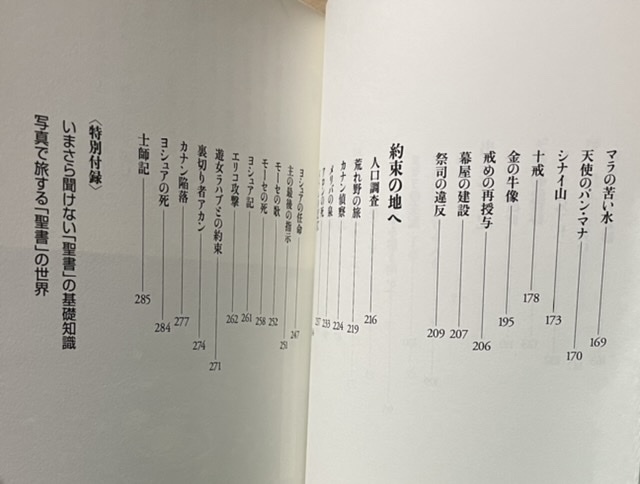 マラの苦い水 169
天使のパン・マナ 170
シナイ山 173
十戒 178
金の牛像 195
戒めの再授与 206
幕屋の建設 207
祭司の違反 209
約束の地へ
人口調査 216
荒れ野の旅 219
カナン偵察 224
メリバの泉 233
237
ヨシュアの任命 247
主の最後の指示 251
モーセの歌 252
モーセの死 258
ヨシュア記 261
エリコ攻撃 262
遊女ラハブとの約束 271
裏切り者アカン 274
カナン陥落 277
ヨシュアの死 284
士師記 285
〈特別付録〉
いまさら聞けない「聖書」の基礎知識
写真で旅する「聖書」の世界